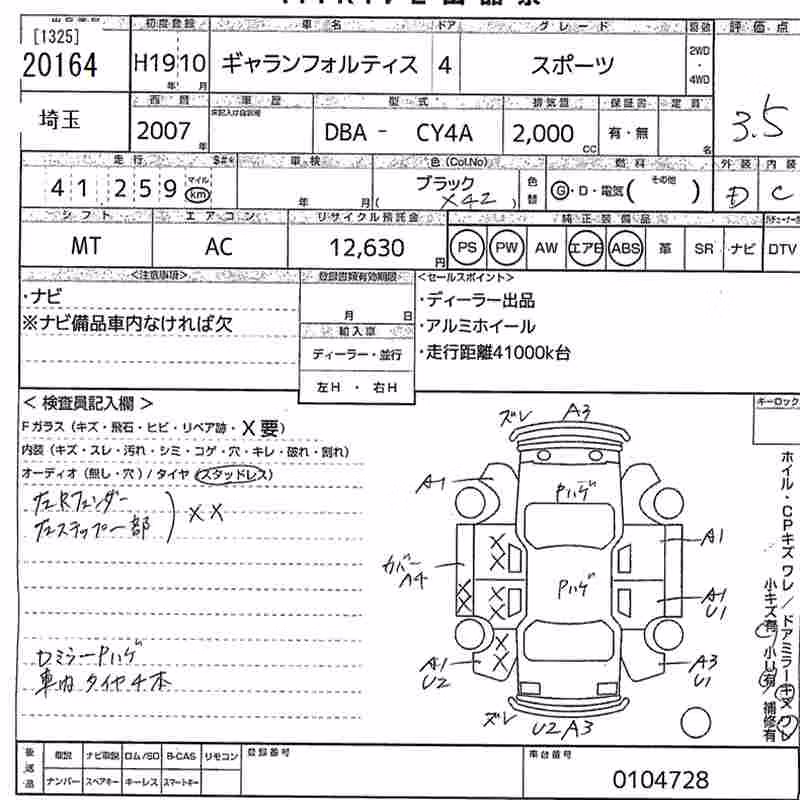 出品番号 初度登録 車名 ドア グレード 駆動 評価点
[1325]
20164 H19 10 ギャランフォルティス 4 スポーツ 2WD・4WD
年 月
埼玉 西暦 車歴 型式 排気量 保証書 定員 3.5
2007 年 DBA - CY4A 2,000 CC 有・無 名
走行 車検 色(Col.No) 燃料 外装 内装
41 259 マイル km 年 月 ブラック ( X42 ) 色替 G・D・電気( その他 ) D C
シフト エアコン リサイクル預託金 純正装備品
MT AC 12,630 円 PS PW AW エアB ABS 革 SR ナビ DTV
<注意事項> 登録書類有効期限 <セールスポイント>
・ナビ 月 日 ・ディーラー出品
※ナビ備品車内なければ欠 輸入車 ・アルミホイール
ディーラー・並行 ・走行距離41000k台
左H ・ 右H
< 検査員記入欄 > キーロック
Fガラス(キズ・飛石・ヒビ・リペア跡・X要)
内装(キズ・スレ・汚れ・シミ・コゲ・穴・キレ・破れ・割れ)
オーディオ(無し・穴)/タイヤ(スタッドレス)
左Rフェンダー
左ステップ一部 ) XX
ロミラーPハゲ
車内タイヤ4本
ズレ A3
A1 Pハゲ
X X A1
カバー A4 X X Pハゲ A1 U1
X X
A1 U2 X X A3 U1
ズレ U2A3
ホイル・CPキズワレ/ドアミラーキズワレ
小キズ有 小U有 補修有
後送品 車説 ナビ取説 ロム/SD B-CAS リモコン 登録番号 車台番号
ナンバー スペアキー キーレス スマートキー 0104728